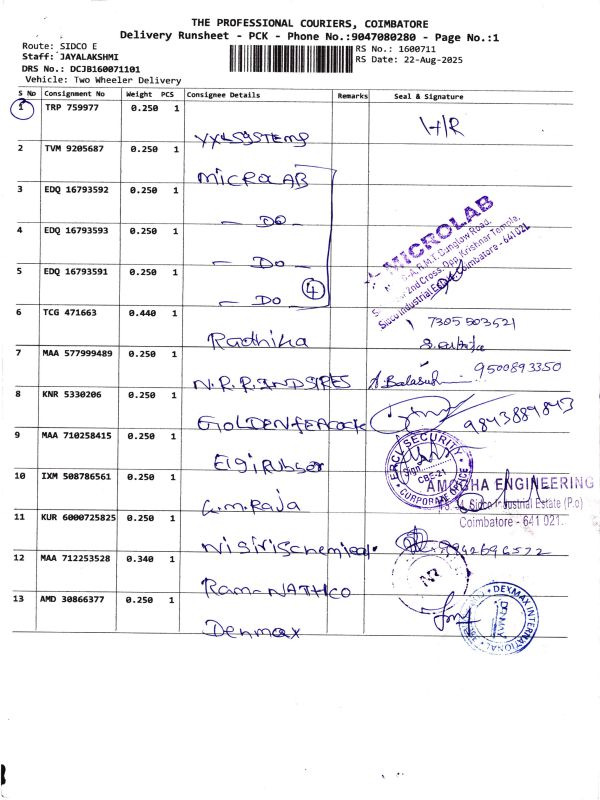 THE PROFESSIONAL COURIERS, COIMBATORE
Delivery Runsheet - PCK - Phone No.:9047080280 - Page No.:1
Route: SIDCO E
Staff: JAYALAKSHMI
DRS No.: DCJB160071101
Vehicle: Two Wheeler Delivery
RS No.: 1600711
RS Date: 22-Aug-2025
S No Consignment No Weight PCS Consignee Details Remarks Seal & Signature
1 TRP 759977 0.250 1 H/R
2 TVM 9205687 0.250 1 MICROLAB
3 EDQ 16793592 0.250 1 - DO -
4 EDQ 16793593 0.250 1 - DO -
5 EDQ 16793591 0.250 1 - DO - 4
MICROLAB
2nd Cross, Opp. Krishnar Temple,
Sidco Industrial Coimbatore - 641021
6 TCG 471663 0.440 1 Radhika 7305503521
7 MAA 577999489 0.250 1 N.R.R. INDSTRES A. Balasub 9500893350
8 KNR 5330206 0.250 1 GOLDENPEACOCK 9843889843
9 MAA 710258415 0.250 1 Elgi Rubber
SECURITY
Sign
CBE-21
CORPORATE OFFICE
10 IXM 508786561 0.250 1 G.M. Raja
AMOGHA ENGINEERING
Sidco Industrial Estate (P.o)
Coimbatore - 641 021.
11 KUR 6000725825 0.250 1
12 MAA 712253528 0.340 1 Ram-NATHCO
13 AMD 30866377 0.250 1 Denmax
DEXMAX INTERNATIONAL